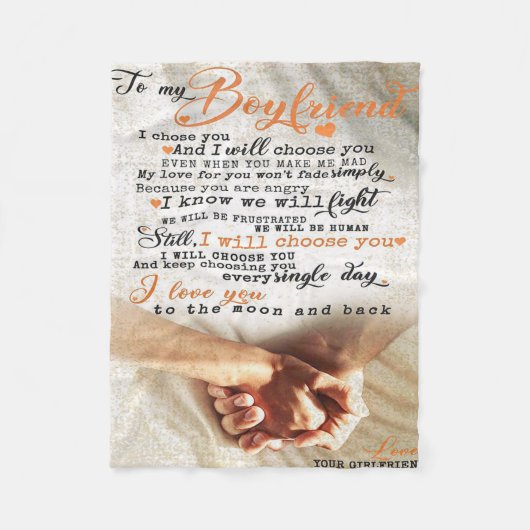 To my Boyfriend
I chose you
And I will choose you
EVEN WHEN YOU MAKE ME MAD
My love for you won't fade simply
Because you are angry
I know we will fight
WE WILL BE FRUSTRATED
WE WILL BE HUMAN
Still, I will choose you
I WILL CHOOSE YOU
And keep choosing you
every single day
I love you
to the moon and back
Love
YOUR GIRLFRIEN